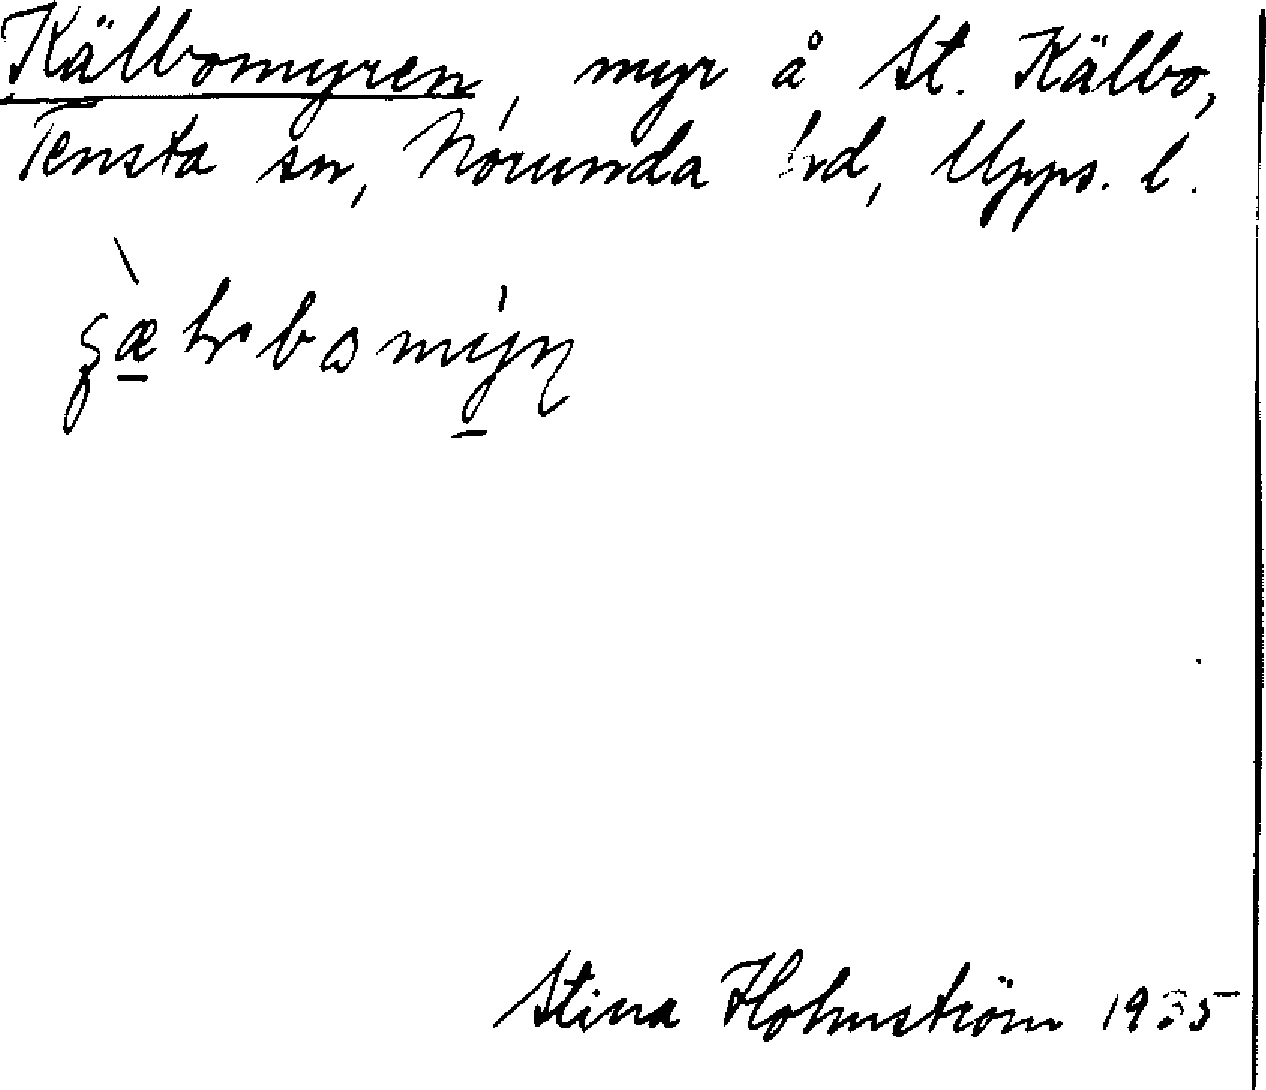 Kälbomyren, myr å St. Kälbo,
Tensta sn, Norunda hd, Upps. l.
Stina Holmström 1935